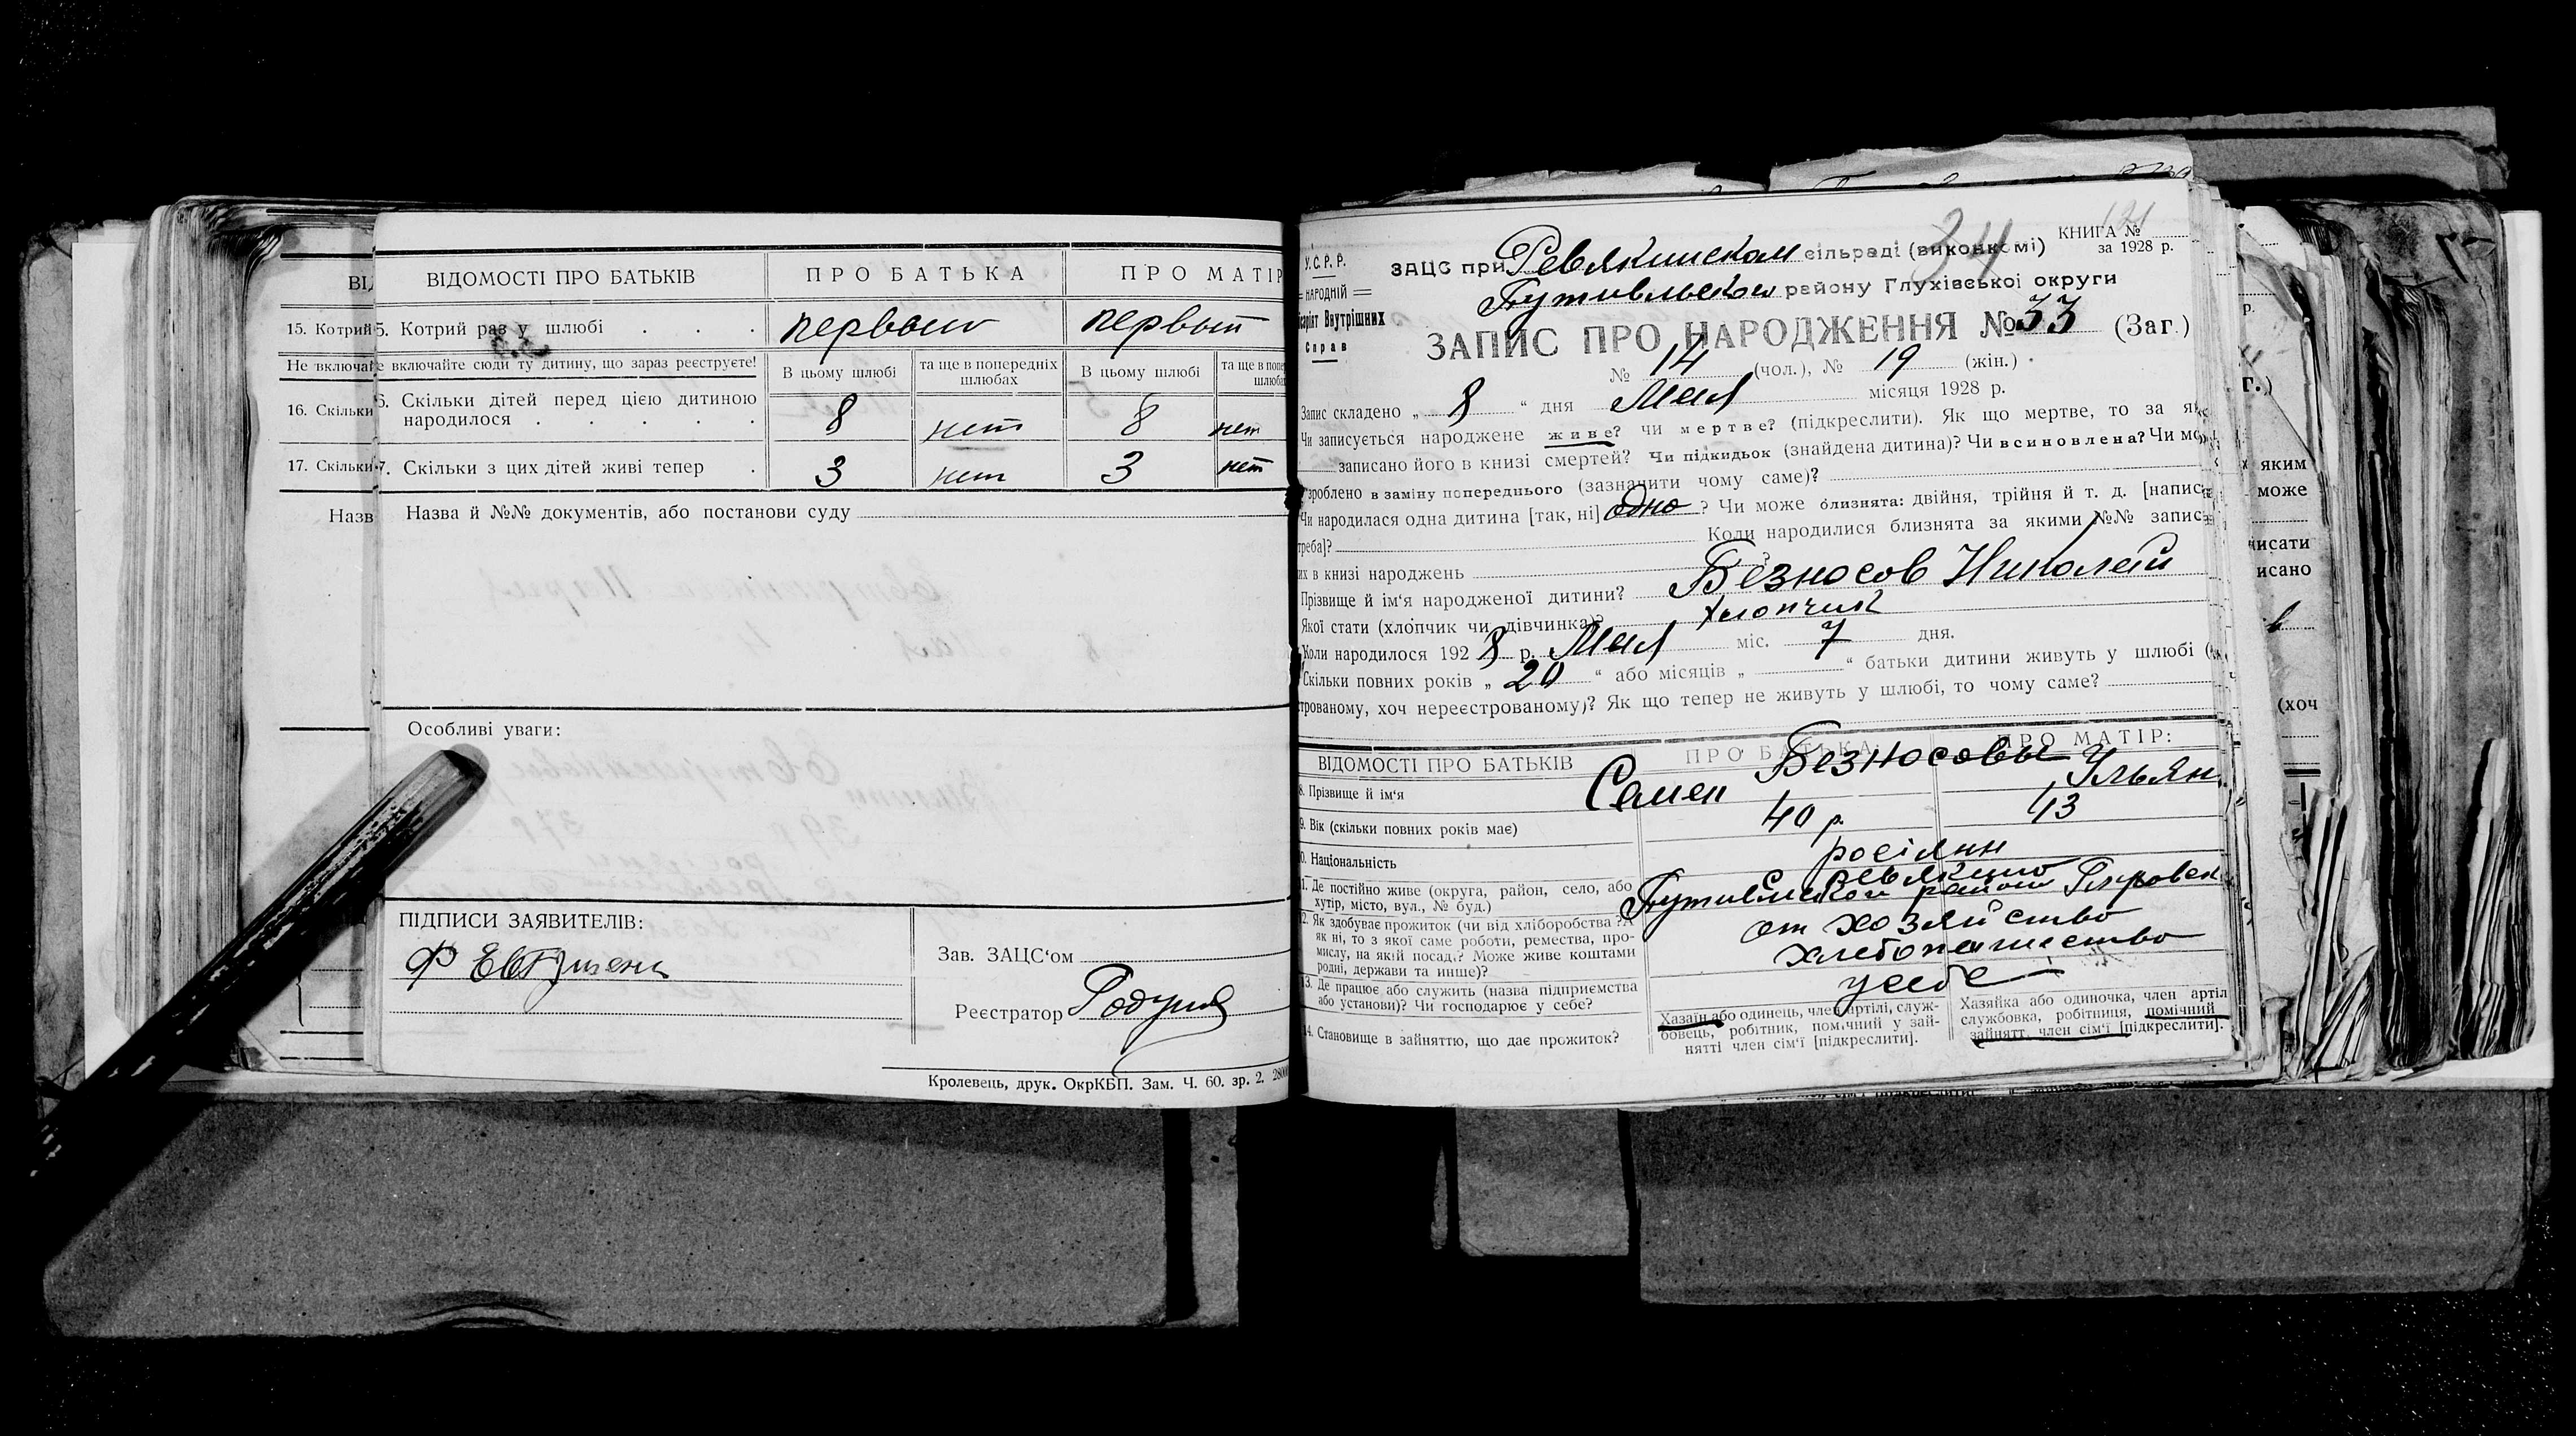 ВІДОМОСТІ ПРО БАТЬКІВ
ПРО БАТЬКА
ПРО МАТІР
15. Котрий
5. Котрий раз у шлюбі
первого
первый
33
Не включайте сюди ту дитину, що зараз реєструєте!
В цьому шлюбі
та ще в попередніх шлюбах
В цьому шлюбі
16. Скільки
6. Скільки дітей перед цією дитиною народилося
8
нет
8
нет
17. Скільки
7. Скільки з цих дітей живі тепер
3
нет
3
нет
Назв
Назва й №№ документів, або постанови суду
Особливі уваги:
ПІДПИСИ ЗАЯВИТЕЛІВ:
Зав. ЗАЦС‘ом
Реєстратор
Кролевець, друк. ОкрКБП. Зам. Ч. 60. зр. 2.
У.С.Р.Р.
НАРОДНІЙ
Внутрішних
Справ
34
КНИГА № 121
за 1928 р.
ЗАЦС при Ревякинском сільраді (виконкомі)
Путивльском району Глухівської округи
ЗАПИС ПРО НАРОДЖЕННЯ № 33 (Заг.)
№ 14 (чол.), № 19 (жін.)
Запис складено „ 8 “ дня Мая місяця 1928 р.
Чи записується народжене живе? чи мертве? (підкреслити). Як що мертве, то за як
записано його в книзі смертей? Чи підкидьок (знайдена дитина)? Чи всиновлена? Чи мо
зроблено в заміну попереднього (зазначити чому саме)?
Чи народилася одна дитина [так, ні] одно ? Чи може близнята: двійня, трійня й т. д. [напис
треба]? Коли народилися близнята за якими №№ запис
их в книзі народжень ?
Прізвище й ім‘я народженої дитини? Безносов Николай
Якої стати (хлопчик чи дівчинка)? хлопчик
Коли народилося 1928 р. Мая міс. 7 дня.
Скільки повних років „ 20 “ або місяців „ “ батьки дитини живуть у шлюбі (
строваному, хоч нереєстрованому)? Як що тепер не живуть у шлюбі, то чому саме?
ВІДОМОСТІ ПРО БАТЬКІВ
ПРО БАТЬКА
ПРО МАТІР:
8. Прізвище й ім‘я
Семен Безносовы Ульян
9. Вік (скільки повних років має)
40 р.
43
0. Національність
росіяни
1. Де постійно живе (округа, район, село, або
хутір, місто, вул., № буд.)
с Ревякино
Путивльской район
2. Як здобуває прожиток (чи від хліборобства? А
як ні, то з якої саме роботи, ремества, про-
мислу, на якій посаді? Може живе коштами
родні, держави та инше)?
от хозяйство
хлебопашество
3. Де працює або служить (назва підприємства
або установи)? Чи господарює у себе?
у себе
14. Становище в зайняттю, що дає прожиток?
Хазаїн або одинець, член артілі, служ-
бовець, робітник, помічний у зай-
нятті член сім‘ї [підкреслити].
Хазяйка або одиночка, член артіл
службовка, робітниця, помічний
зайнятт. член сім‘ї [підкреслити].
яким
може
писати
исано
(хоч